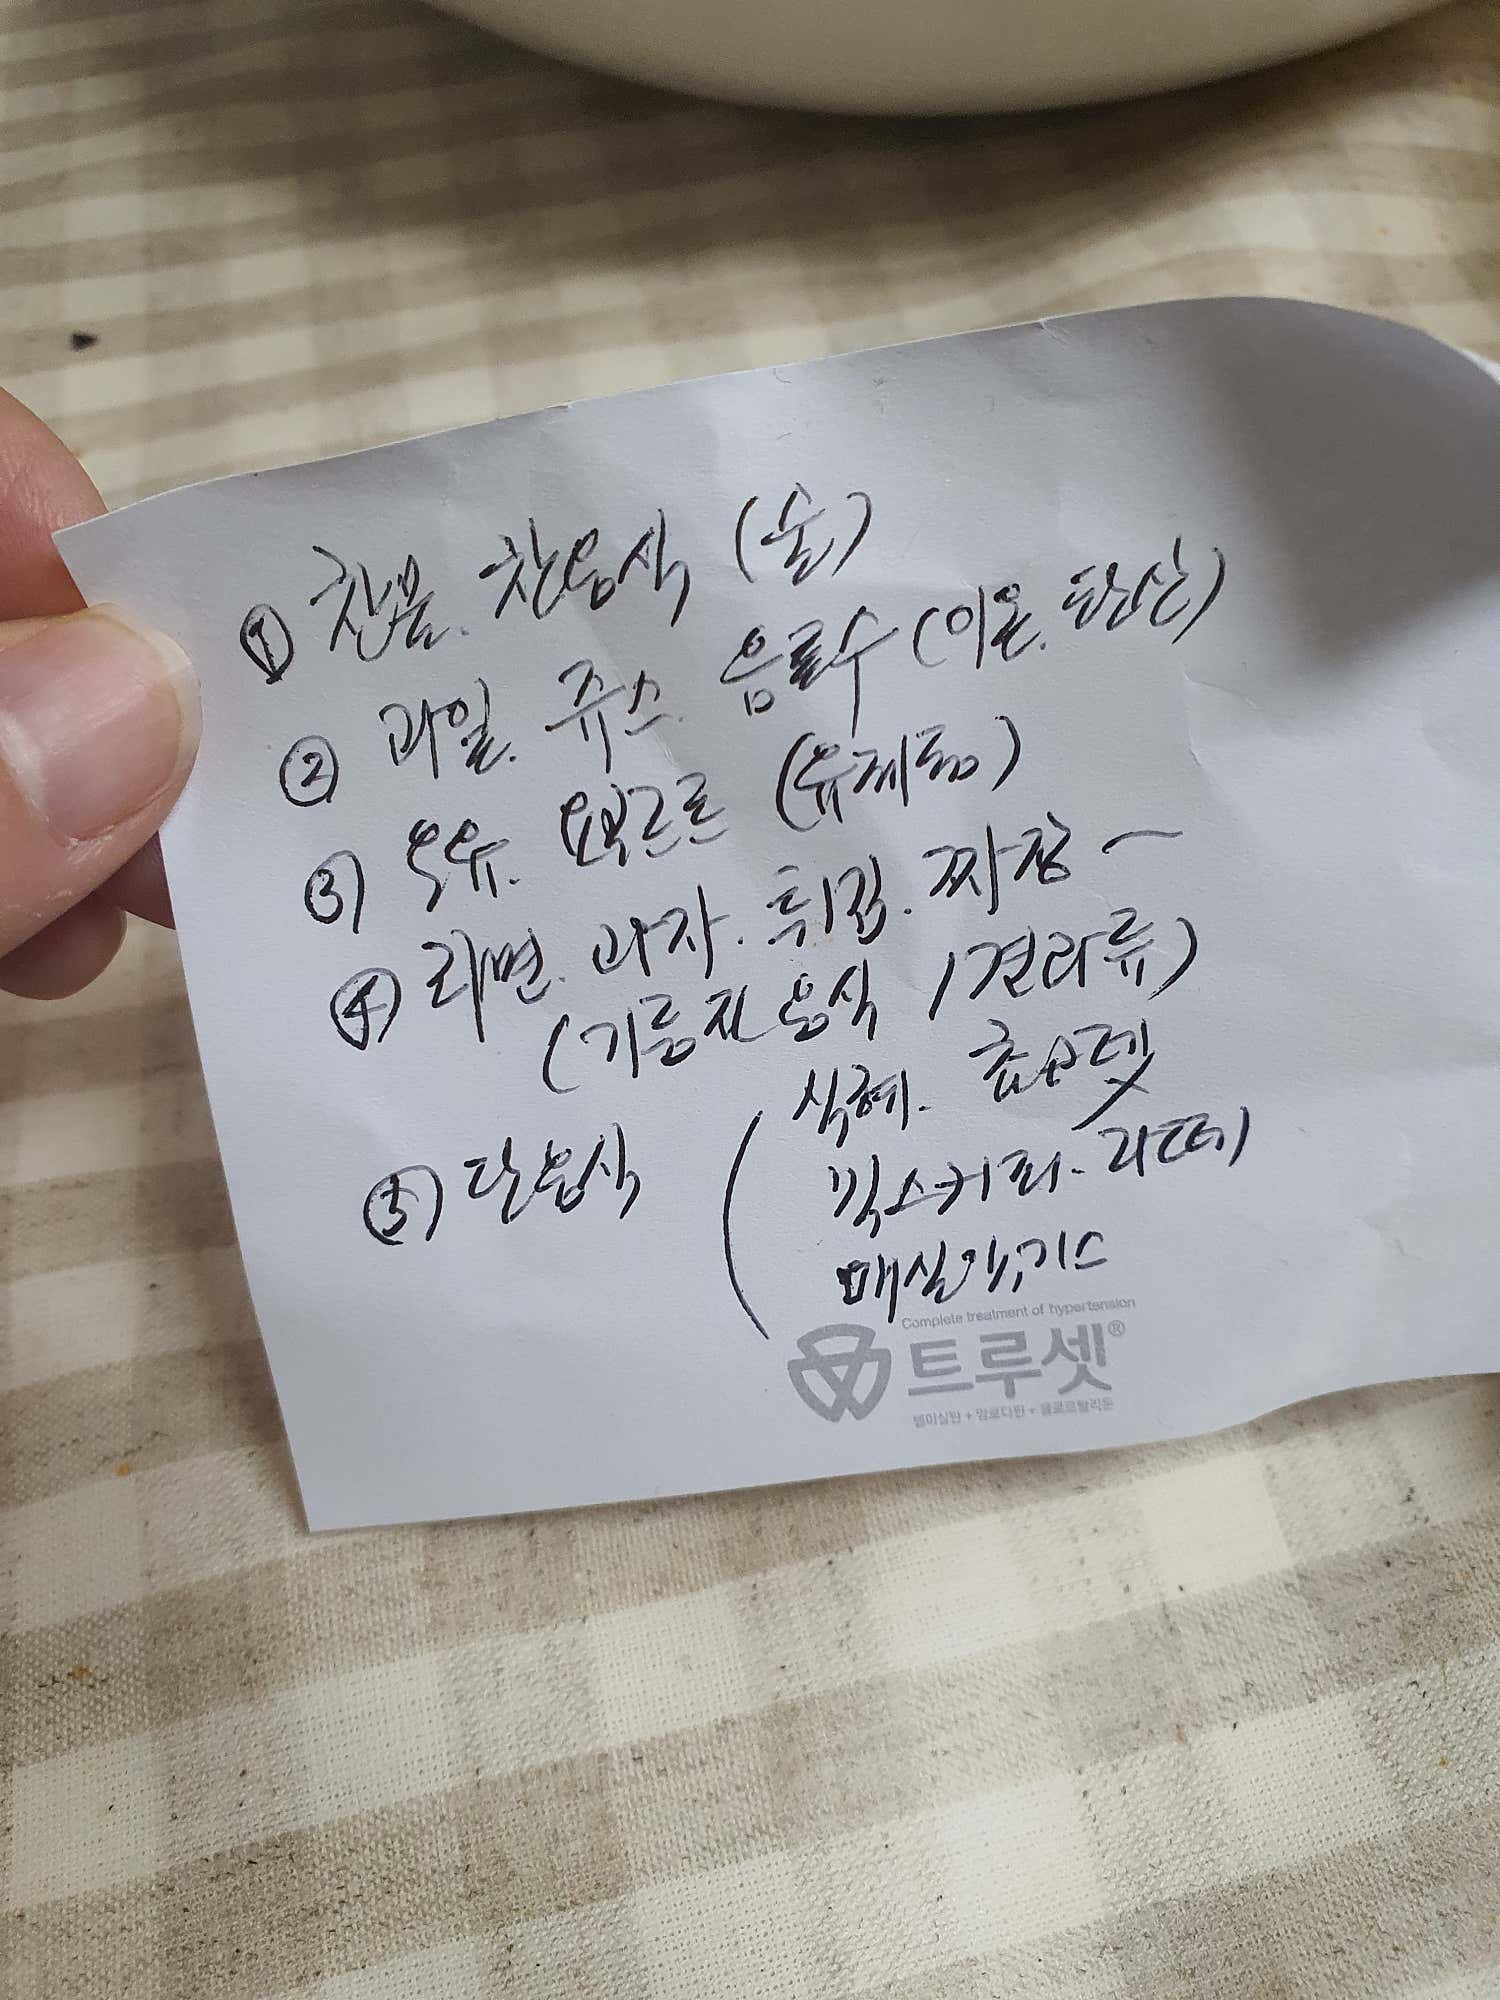 ① 찬물. 찬음식 (술)
② 과일. 쥬스. 음료수 (이온. 탄산)
③ 우유. 요구르트 (유제품)
④ 라면. 과자. 튀김. 짜장 ~
(기름진 음식 / 견과류)
⑤ 단음식 ( 식혜. 쵸코렛
믹스커피. 라떼
매실액기스
Complete treatment of hypertension
트루셋®
텔미살탄 + 암로디핀 + 클로르탈리돈